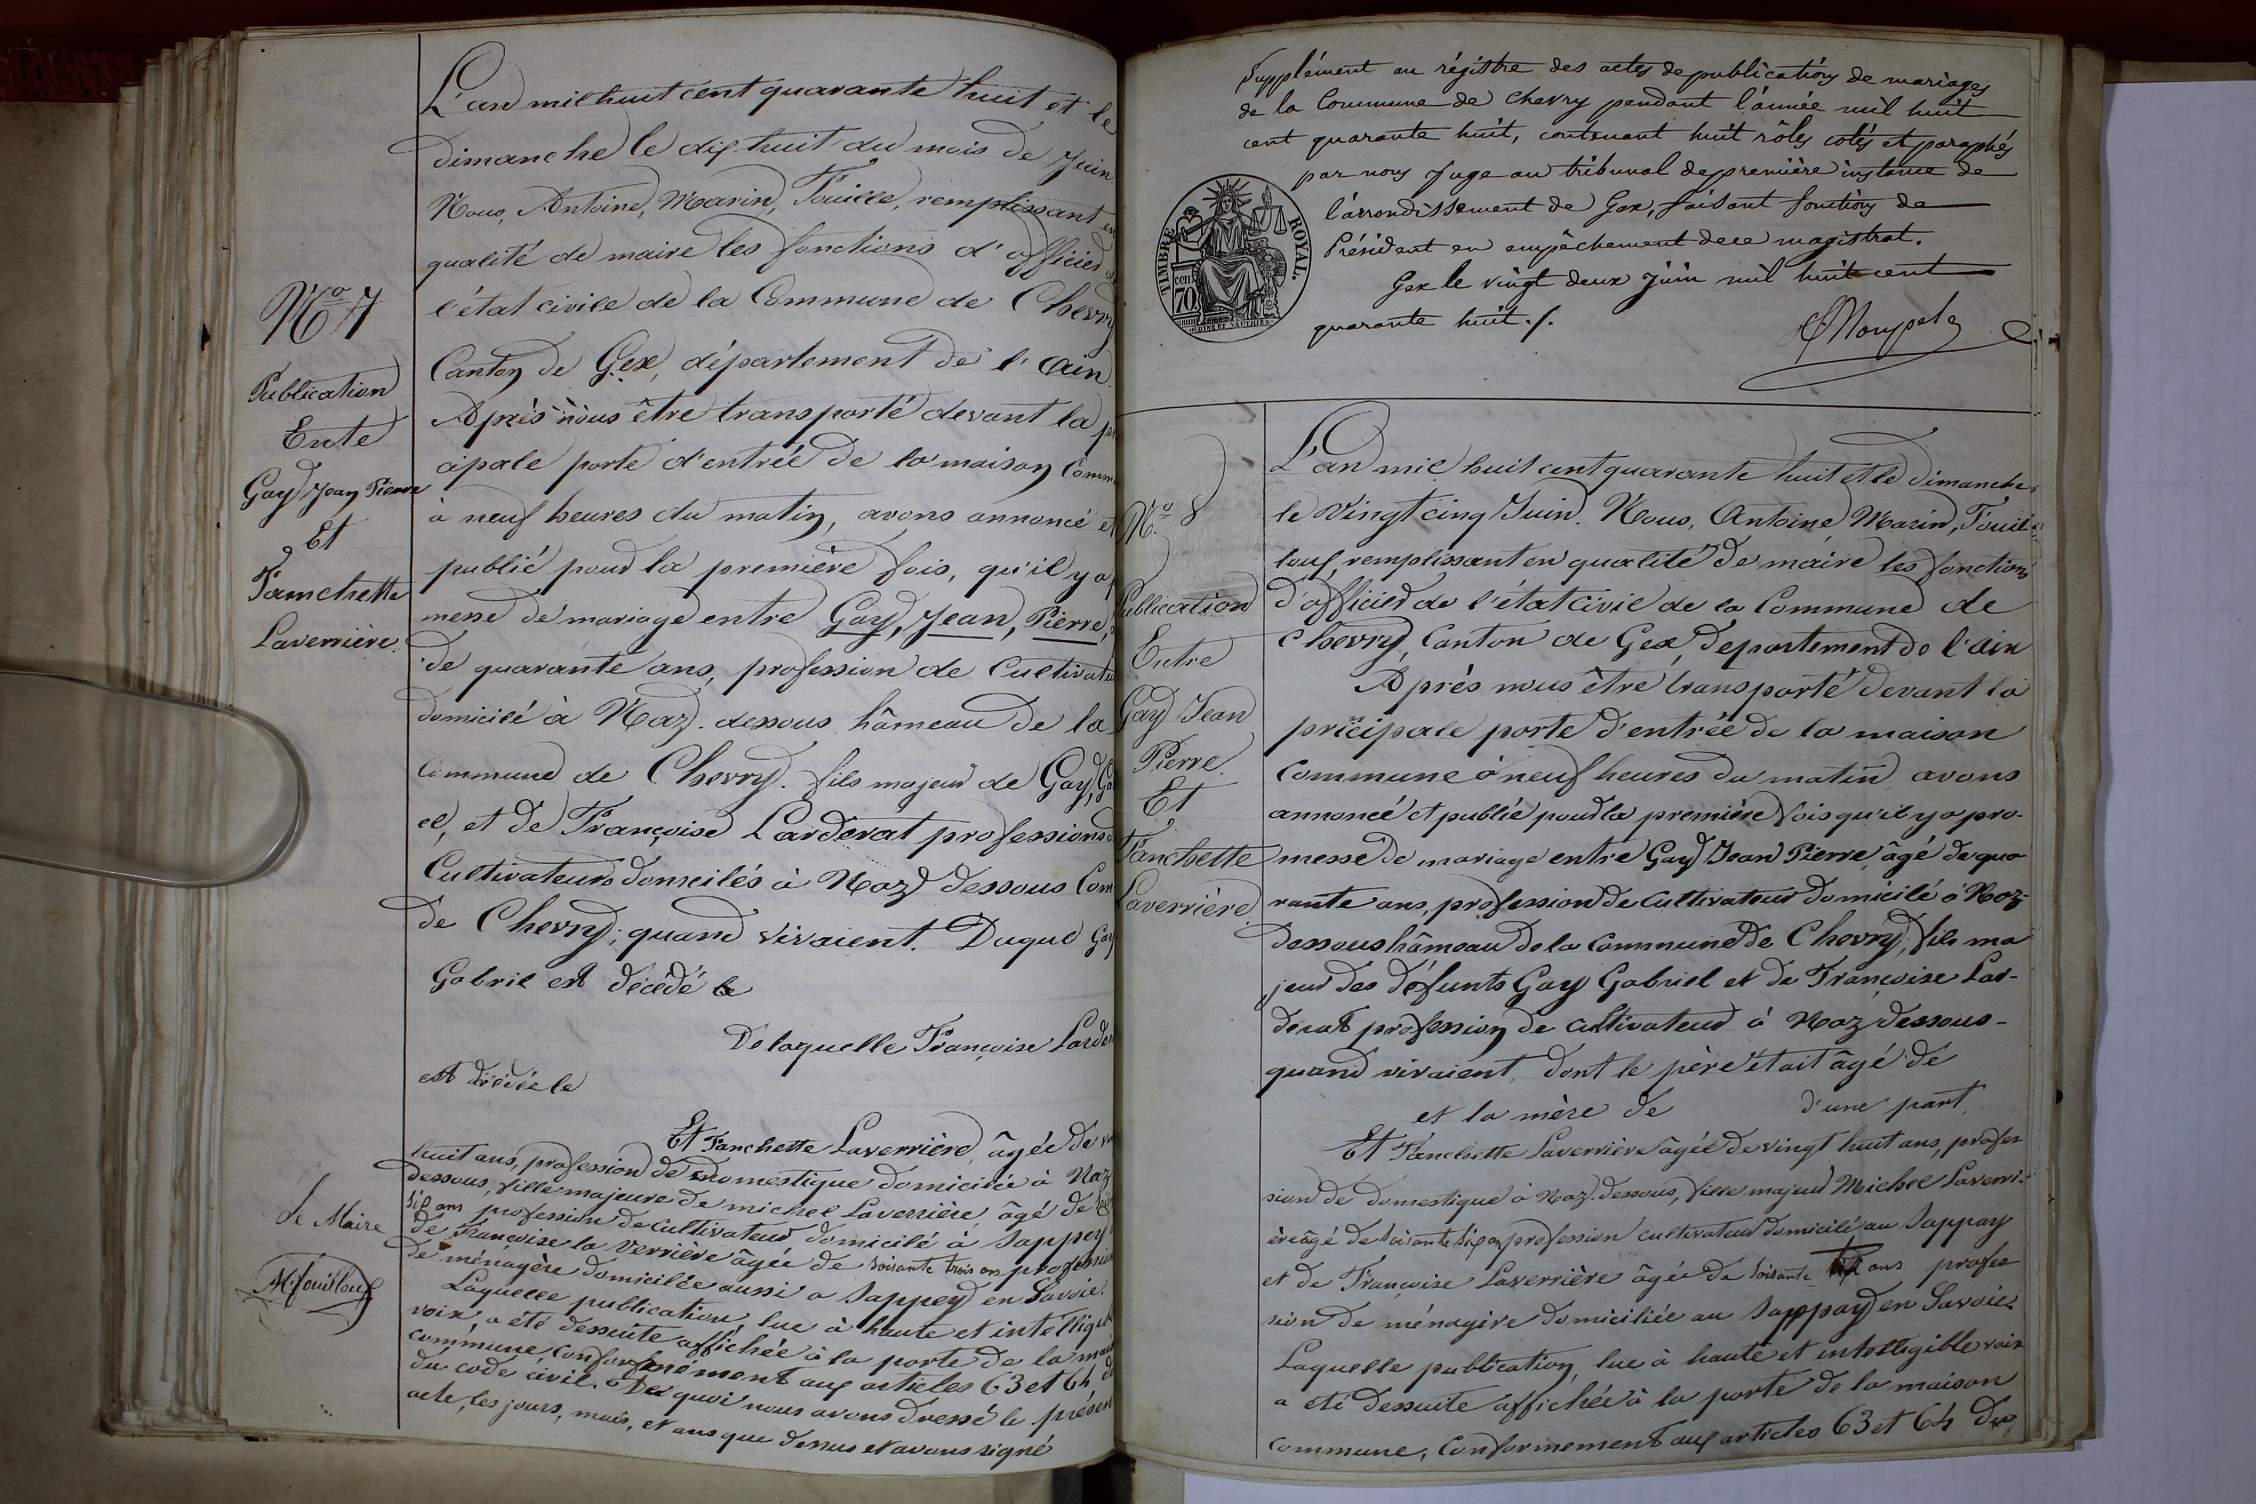 L'an mil huit cent quarante huit et le
dimanche le dix huit du mois de Juin
Nous, Antoine, Marin, Fouille, remplissant en
qualité de maire les fonctions d'officier
l'état civile de la Commune de Chevry
Canton de Gex, département de l'ain.
Après nous être transporté devant la
cipale porte d'entrée de la maison Comm
à neuf heures du matin, avons annoncé et
publié pour la première fois, qu'il y a
messe de mariage entre Gay, Jean, Pierre,
de quarante ans, profession de Cultivate
domicilé à Naz. dessous hâmeau de la
Commune de Chevry. fils majeur de Gay, Ga
el, et de Françoise Larderat professions
Cultivateurs domicilés à Naz dessous Com
de Chevry; quand vivaient. Duquel Gay
Gabriel est décédé le
De laquelle Françoise Larde
est décédée le
Et Fanchette Laverrière, âgée de
huit ans, profession de domestique domicilée à Naz
dessous, fille majeure de michel Laverrière, âgé de
six ans profession de Cultivateur domicilé à Sappey
de Françoise la Verrière âgée de soisante trois ans profession
de ménagère domicilée aussi a Sappey en Savoie.
Laquelle publication, lue à haute et intélligib
voix, a été dessuite affichée à la porte de la mais
commune, conformément aux articles 63 et 64 d
du code civil. De quoi nous avons dressé le présen
acte, les jours, mois, et ans que dessus et avons signé
No 7
Publication
Ente
Gay Jean Pierre
Et
Fanchette
Laverrière.
Le Maire
AMfouilloux
Supplément au régistre des actes de publications de mariages
de la Commune de Chevry pendant l'année mil huit
cent quarante huit, contenant huit rôles cotés et paraphés
par nous Juge au tribunal de première instance de
l'arrondissement de Gex, faisant fonctions de
Président en empêchement de ce magistrat.
Gex le vingt deux Juin mil huit cent
quarante huit ./.
TIMBRE ROYAL.
cen.
70
No 8
Publication
Entre
Gay Jean
Pierre.
Et
Fanchette
Laverrière
L'an mil huit cent quarante huit et le dimanche
le vingt cinq Juin. Nous, Antoine Marin, Fouil-
loux, remplissant en qualité de maire les fonctions
d'officier de l'état civil de la Commune de
Chevry, Canton de Gex, departement de l'ain
Après nous être transporté devant la
pricipale porte d'entrée de la maison
commune à neuf heures du matin avons
annoncé et publié pour la première fois qu'il y a pro-
messe de mariage entre Gay Jean Pierre, âgé de qua
rante ans, profession de Cultivateur domicilé à Naz-
dessous hâmeau de la Commune de Chevry, fils ma
jeur des défunts Gay Gabriel et de Françoise Lar-
derat profession de cultivateur à Naz dessous-
quand vivaient, dont le père était âgé de
et la mère de d'une part,
Et Fanchette Laverrière âgée de vingt huit ans, profes
sion de domestique à Naz. dessous, fille majeur Michel Laverri-
ère âgé de soisante six ans profession cultivateur domicilé au Sappay
et de Françoise Laverrière âgée de soisante ans profes
sion de ménagère domiciliée au Sappay en Savoie.
Laquelle publication, lue à haute et intelligible voix
a été dessuite affichée à la porte de la maison
commune, Conformement aux articles 63 et 64 du